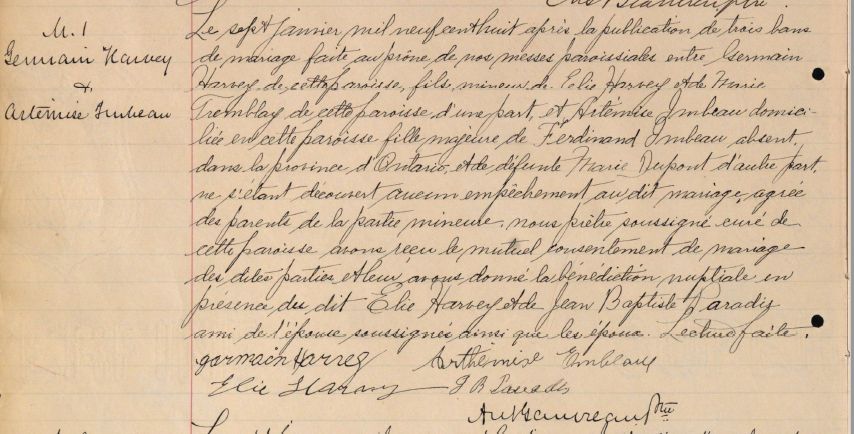 M. 1
Germain Harvey
&
Artémise Imbeau
Le sept janvier mil neuf cent huit après la publication de trois bans
de mariage faite au prône de nos messes paroissiales entre Germain
Harvey de cette paroisse, fils, mineur de Elie Harvey et de Marie
Tremblay de cette paroisse, d'une part, et Artémise Imbeau domici-
liée en cette paroisse fille majeure de Ferdinand Imbeau absent,
dans la province d'Ontario, et de défunte Marie Dupont d'autre part,
ne s'étant découvert aucun empêchement au dit mariage, agrée
des parents de la partie mineure, nous prêtre soussigné curé de
cette paroisse avons reçu le mutuel consentement de mariage
des dites parties et leur avons donné la bénédiction nuptiale en
présence du dit Elie Harvey et de Jean Baptiste Paradis
ami de l'épouse soussignés ainsi que les époux. Lecture faite.
germain Harvey Arthémise Embeau
Elie Harvey J B Paradis
Ptre